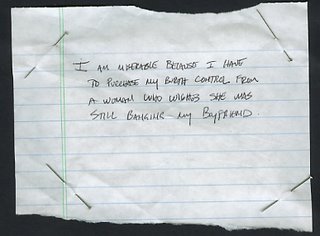 I AM MISERABLE BECAUSE I HAVE
TO PURCHASE MY BIRTH CONTROL FROM
A WOMAN WHO WISHES SHE WAS
STILL BANGING MY BOYFRIEND.